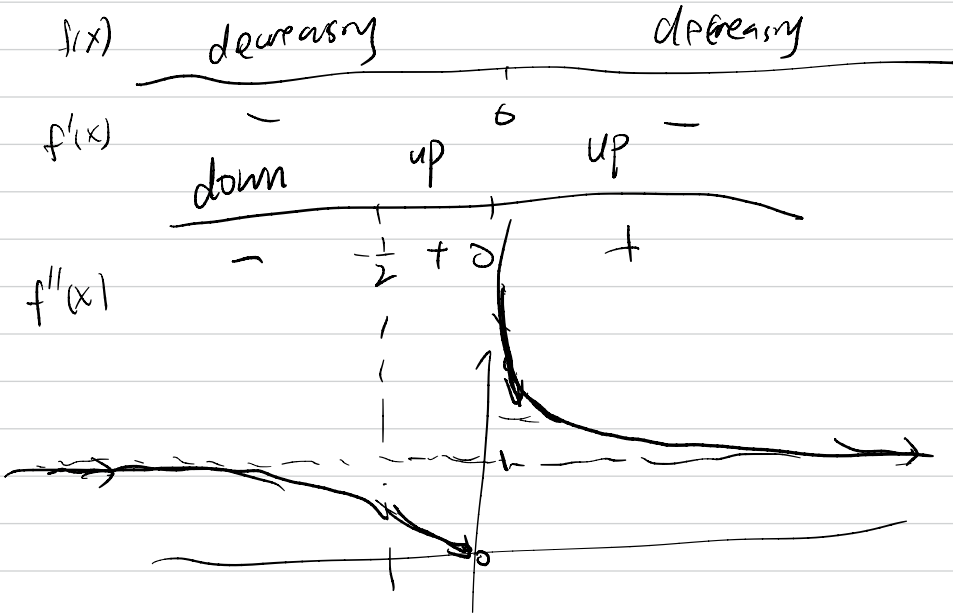 f(x) decreasing decreasing
f'(x) - 0 -
down up up
f''(x) - -1/2 + 0 +
1
0